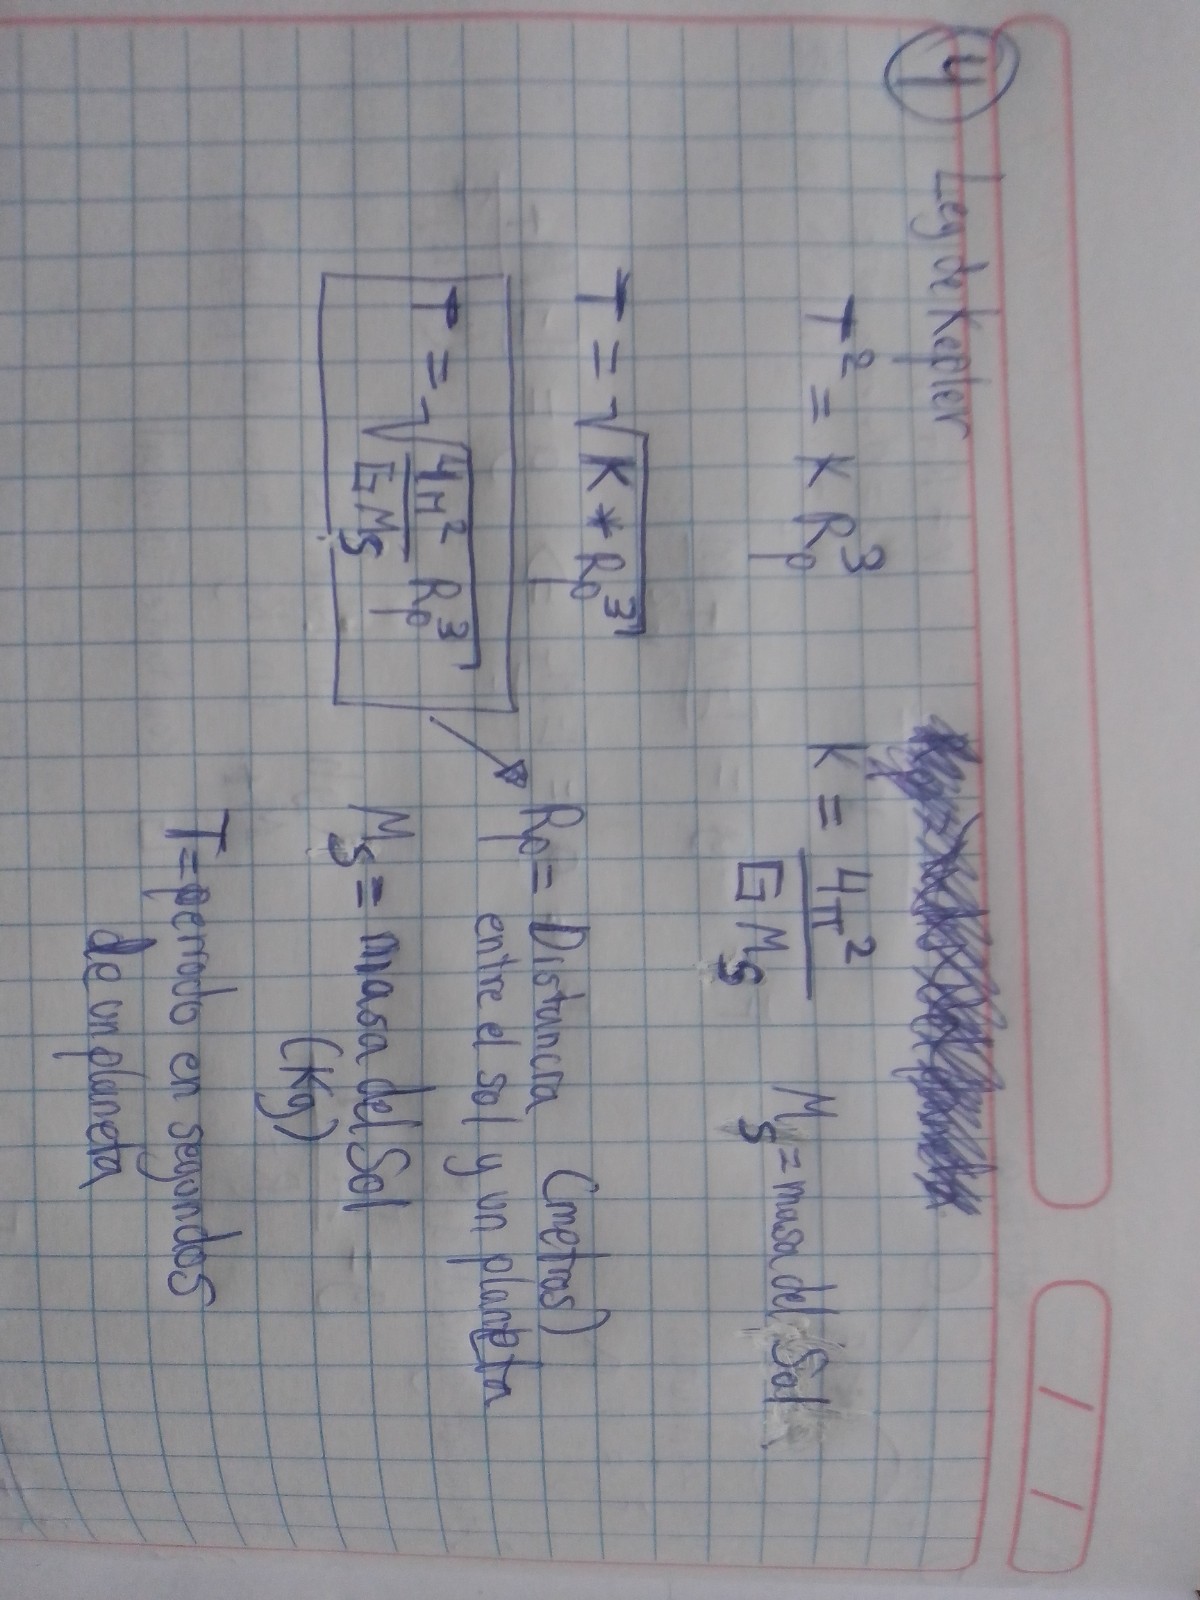 4 Ley de Kepler
T² = K Rp³ K = 4π² / G Ms Ms = masa del Sol
T = √K * Rp³
T = √4π² / G Ms Rp³
Rp = Distancia (metros)
entre el sol y un planeta
Ms = masa del Sol
(Kg)
T = periodo en segundos
de un planeta